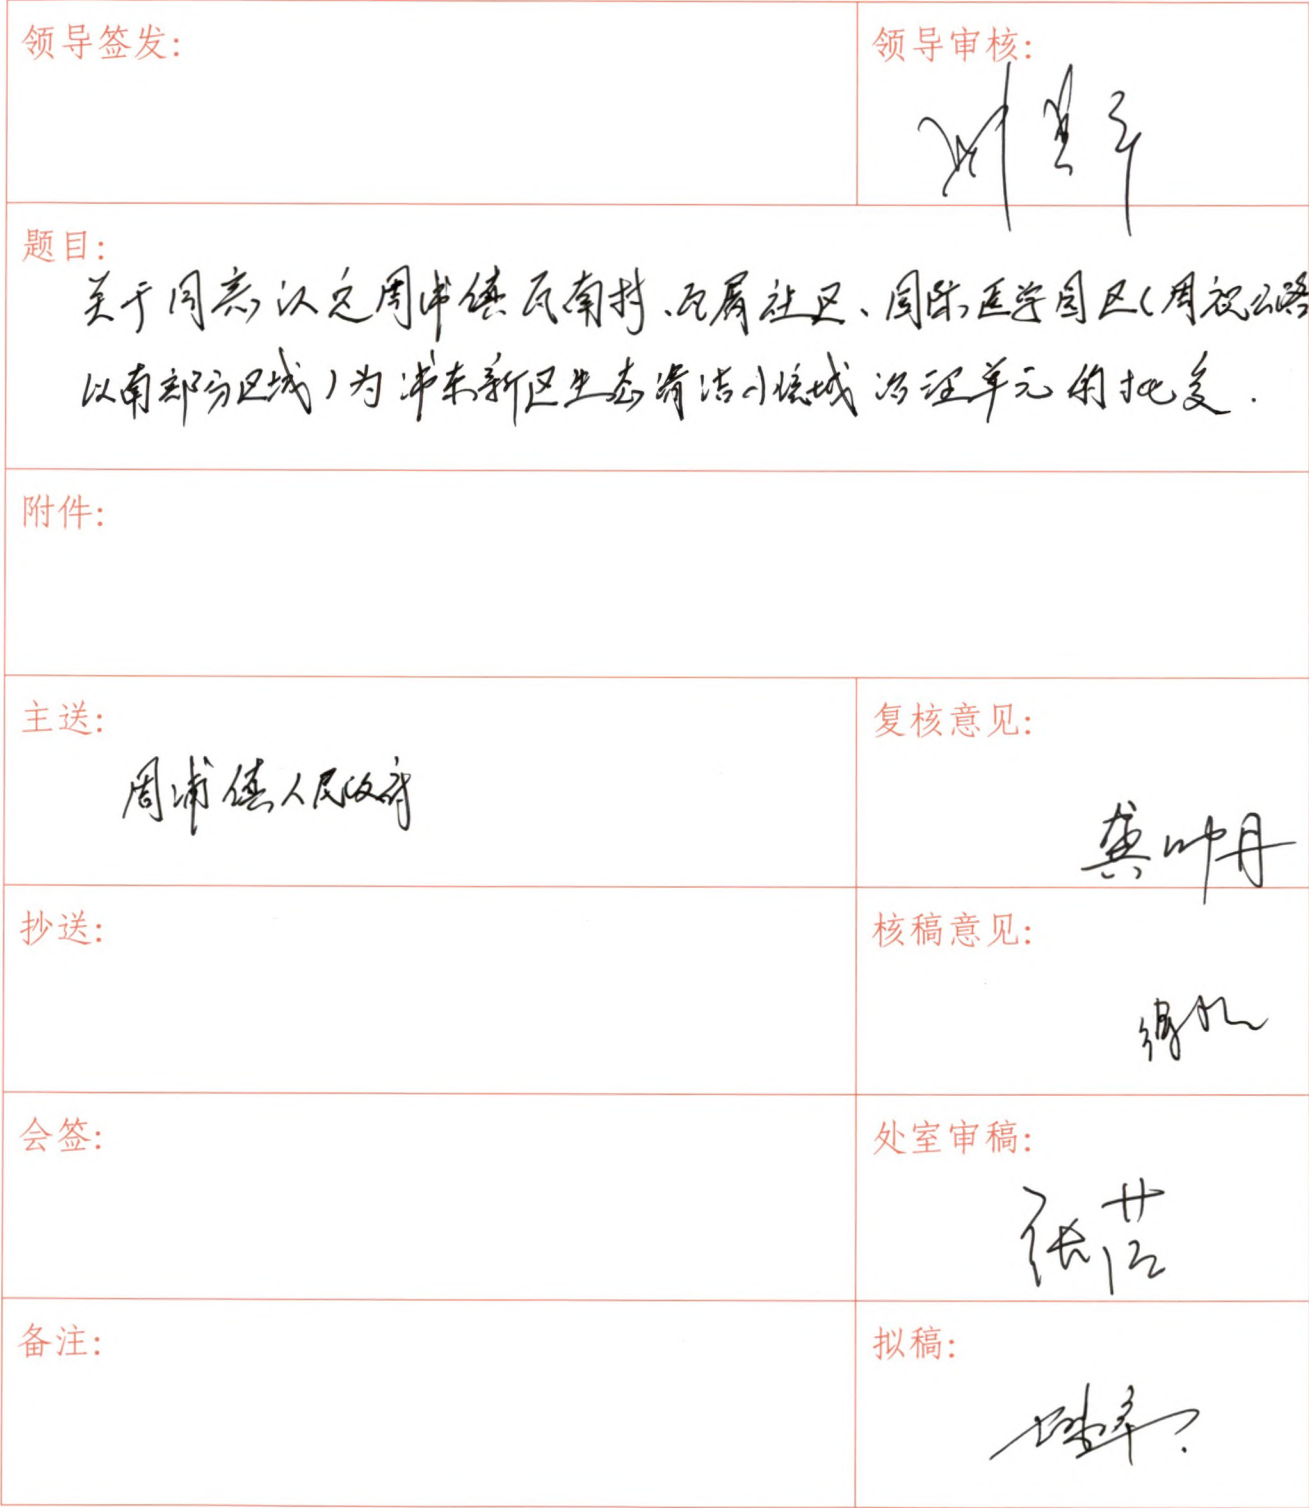 领导签发:
领导审核:
题目:
关于同意认定周浦镇瓦南村、瓦屑社区、国际医学园区(周祝公路
以南部分区域)为浦东新区生态清洁小流域治理单元的批复.
附件:
主送:
周浦镇人民政府
复核意见:
龚帅丹
抄送:
核稿意见:
会签:
处室审稿:
张
备注:
拟稿: